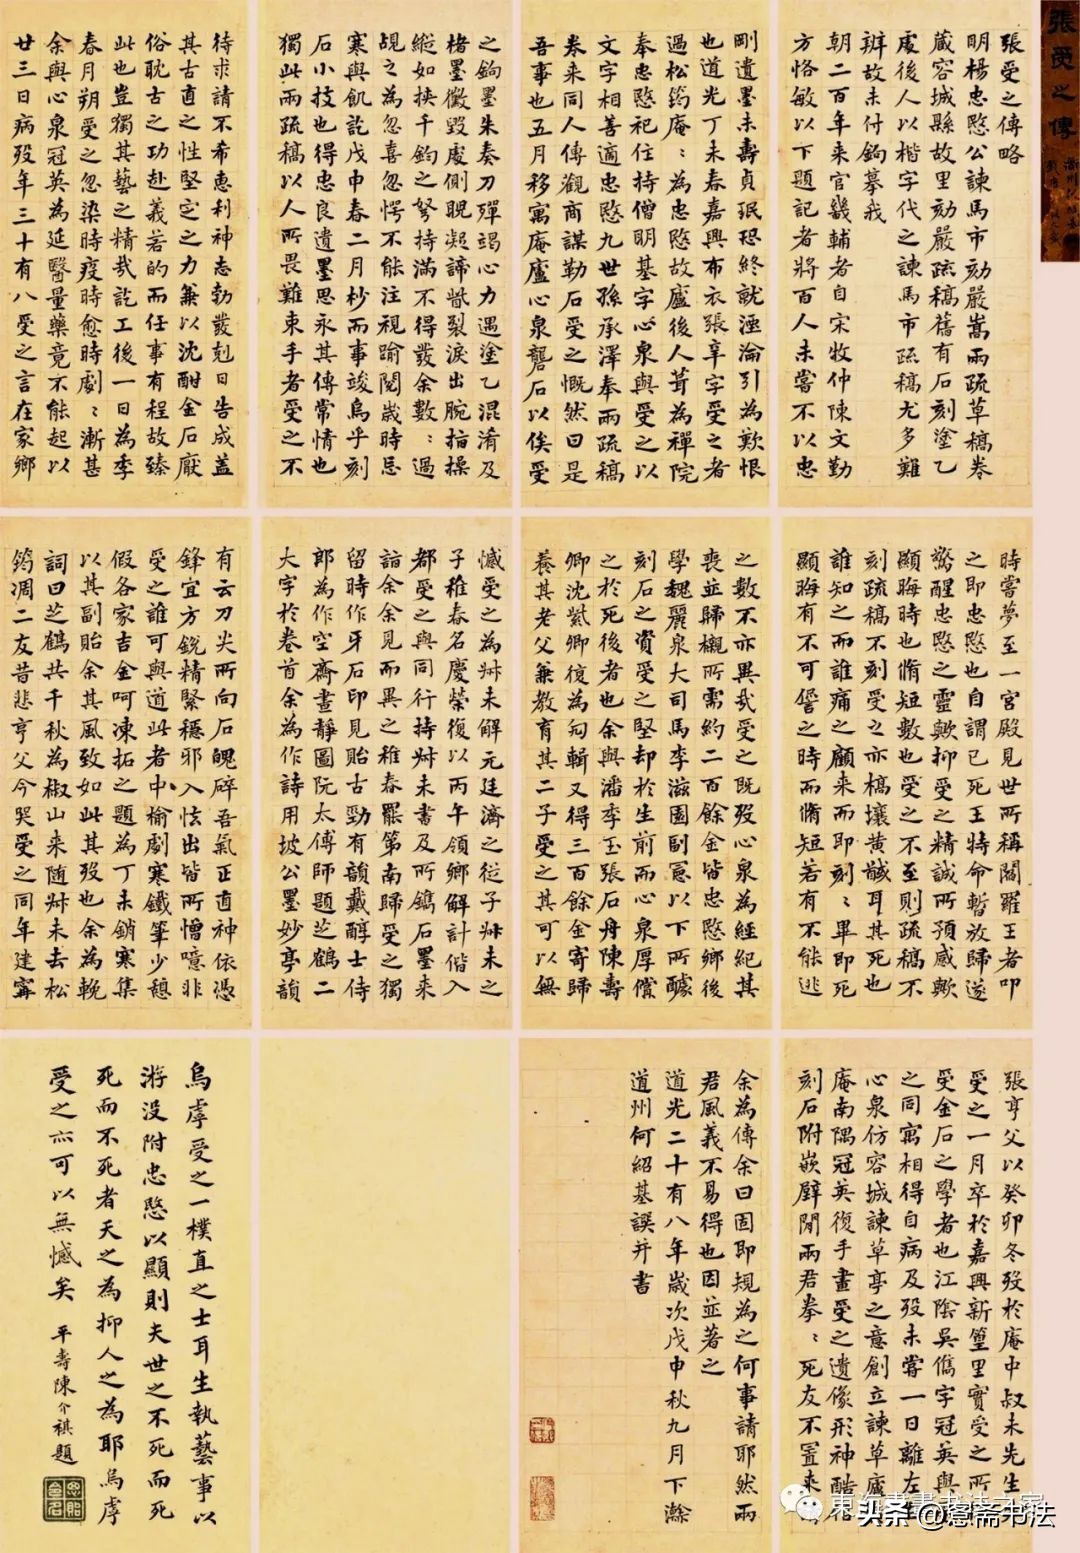 張受之傳
張受之傳略
明楊忠愍公諫馬市劾嚴嵩兩疏草稿卷
藏容城縣故里劾嚴疏稿舊有石刻塗乙
處後人以楷字代之諫馬市疏稿尤多難
辨故未付鉤摹我
朝二百年來官畿輔者自宋牧仲陳文勤
方恪敏以下題記者將百人未嘗不以忠
剛遺墨未壽貞珉恐終就湮淪引為歎恨
也道光丁未春嘉興布衣張辛字受之者
過松筠庵：為忠愍故廬後人葺為禪院
奉忠愍祀住持僧明基字心泉與受之以
文字相善適忠愍九世孫承澤奉兩疏稿
卷來同人傳觀商謀勒石受之慨然曰是
吾事也五月移寓庵廬心泉礱石以俟受
之鉤墨朱奏刀殫竭心力遇塗乙混淆及
楮墨黴毀處側睨凝諦眥裂淚出腕指操
縱如挾千鈞之弩持滿不得發余數：過
覘之為忽喜忽愕不能注視踰閱歲時忌
寒與飢訖戊申春二月杪而事竣烏乎刻
石小技也得忠良遺墨思永其傳常情也
獨此兩疏稿以人所畏難束手者受之不
待求請不希惠利神志勃發剋日告成蓋
其古直之性堅定之力兼以沈酣金石厭
俗耽古之功赴義若的而任事有程故臻
此也豈獨其藝之精哉訖工後一日為季
春月朔受之忽染時疫時愈時劇：漸甚
余與心泉冠英為延醫量藥竟不能起以
廿三日病歿年三十有八受之言在家鄉
時嘗夢至一宮殿見世所稱閻羅王者叩
之即忠愍也自謂已死王特命暫放歸遂
驚醒忠愍之靈歟抑受之精誠所預感歟
顯晦時也脩短數也受之不至則疏稿不
刻疏稿不刻受之亦槁壤黃馘耳其死也
誰知之而誰痛之顧來而即刻：畢即死
顯晦有不可詧之時而脩短若有不能逃
之數不亦異哉受之既歿心泉為經紀其
喪並歸櫬所需約二百餘金皆忠愍鄉後
學魏麗泉大司馬李滋園副憲以下所醵
刻石之資受之堅却於生前而心泉厚償
之於死後者也余與潘季玉張石舟陳壽
卿沈紫卿復為匄輯又得三百餘金寄歸
養其老父兼教育其二子受之其可以無
憾受之為叔未解元廷濟之從子叔未之
子稚春名慶榮復以丙午領鄉解計偕入
都受之與同行持叔未書及所鐫石墨來
詣余余見而異之稚春罷第南歸受之獨
留時作牙石印見貽古勁有韻戴醇士侍
郎為作空齋晝靜圖阮太傅師題芝鶴二
大字於卷首余為作詩用坡公墨妙亭韻
有云刀尖所向石魄碎吾氣正直神依憑
鋒宜方銳精緊穩邪入怯出皆所憎噫非
受之誰可與道此者中榆劇寒鐵筆少憩
假各家吉金呵凍拓之題為丁未銷寒集
以其副貽余其風致如此其歿也余為輓
詞曰芝鶴共千秋為椒山來隨叔未去松
筠凋二友昔悲亨父今哭受之同年建甯
張亨父以癸卯冬歿於庵中叔未先生
受之一月卒於嘉興新篁里實受之所
受金石之學者也江陰吳儁字冠英與
之同寓相得自病及歿未嘗一日離左
心泉仿容城諫草亭之意創立諫草廬
庵南隅冠英復手畫受之遺像形神酷
刻石附嵌壁間兩君拳：死友不置來
余為傳余曰固即規為之何事請耶然兩
君風義不易得也因並著之
道光二十有八年歲次戊申秋九月下瀚
道州何紹基譔并書
烏虖受之一樸直之士耳生執藝事以
游没附忠愍以顯則夫世之不死而死
死而不死者天之為抑人之為耶烏虖
受之亦可以無憾矣 平壽陳介祺題
头条@愙斋书法